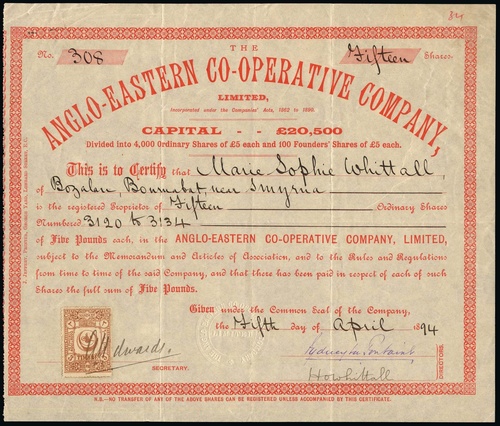 34
THE
No. 308 Fifteen Shares.
ANGLO-EASTERN CO-OPERATIVE COMPANY,
LIMITED,
Incorporated under the Companies' Acts, 1862 to 1886.
CAPITAL - - £20,500
Divided into 4,000 Ordinary Shares of £5 each and 100 Founders' Shares of £5 each.
This is to Certify that Marie Sophie Whittall
of Bozalan, Bournabat, near Smyrna
is the registered Proprietor of Fifteen Ordinary Shares
Numbered 3120 to 3134
of Five Pounds each, in the ANGLO-EASTERN CO-OPERATIVE COMPANY, LIMITED,
subject to the Memorandum and Articles of Association, and to the Rules and Regulations
from time to time of the said Company, and that there has been paid in respect of each of such
Shares the full sum of Five Pounds.
Given under the Common Seal of the Company,
the Fifth day of April 1894
Edwards.
SECRETARY.
H O Whittall
DIRECTORS.
N.B.—NO TRANSFER OF ANY OF THE ABOVE SHARES CAN BE REGISTERED UNLESS ACCOMPANIED BY THIS CERTIFICATE.